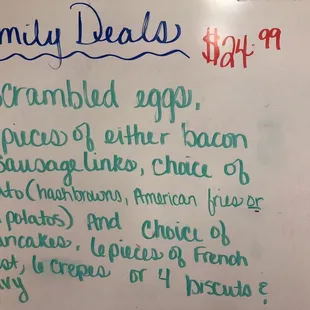 mily Deals $24.99
crambled eggs,
pieces of either bacon
sausage links, choice of
ato (hashbrowns, American fries or
potatos) And choice of
ancakes, 6 pieces of French
st, 6 crepes or 4 biscuts &
vy